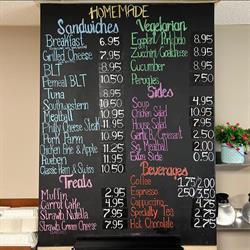 HOMEMADE
Sandwiches
Breakfast 6.95
Grilled Cheese 7.95
BLT 8.95
Pemeal BLT 10.50
Tuna 8.95
Southwestern 10.50
Meatball 10.95
Philly Cheese Steak 11.95
Pork Parm 10.95
Chicken Brie & Apple 11.25
Rueben 11.95
Classic Ham & Swiss 10.50
Treats
Muffin 2.95
Carrot Cake 4.95
Strawb. Nutella 7.95
Strawb. 2.95
Vegetarian
Eggplant 8.95
Zucchini Goatcheese 8.95
Cucumber 8.95
Perogies 7.50
Sides
Soup 4.95
Chicken Salad 10.95
House Salad 7.95
& Croissant 2.50
Sg. Meatball 2.00
Extra Side 2.50
Beverages
Coffee 1.75/2.00
Espresso
Cappuccino 4.75
Specialty Tea
Hot Chocolate 2.75